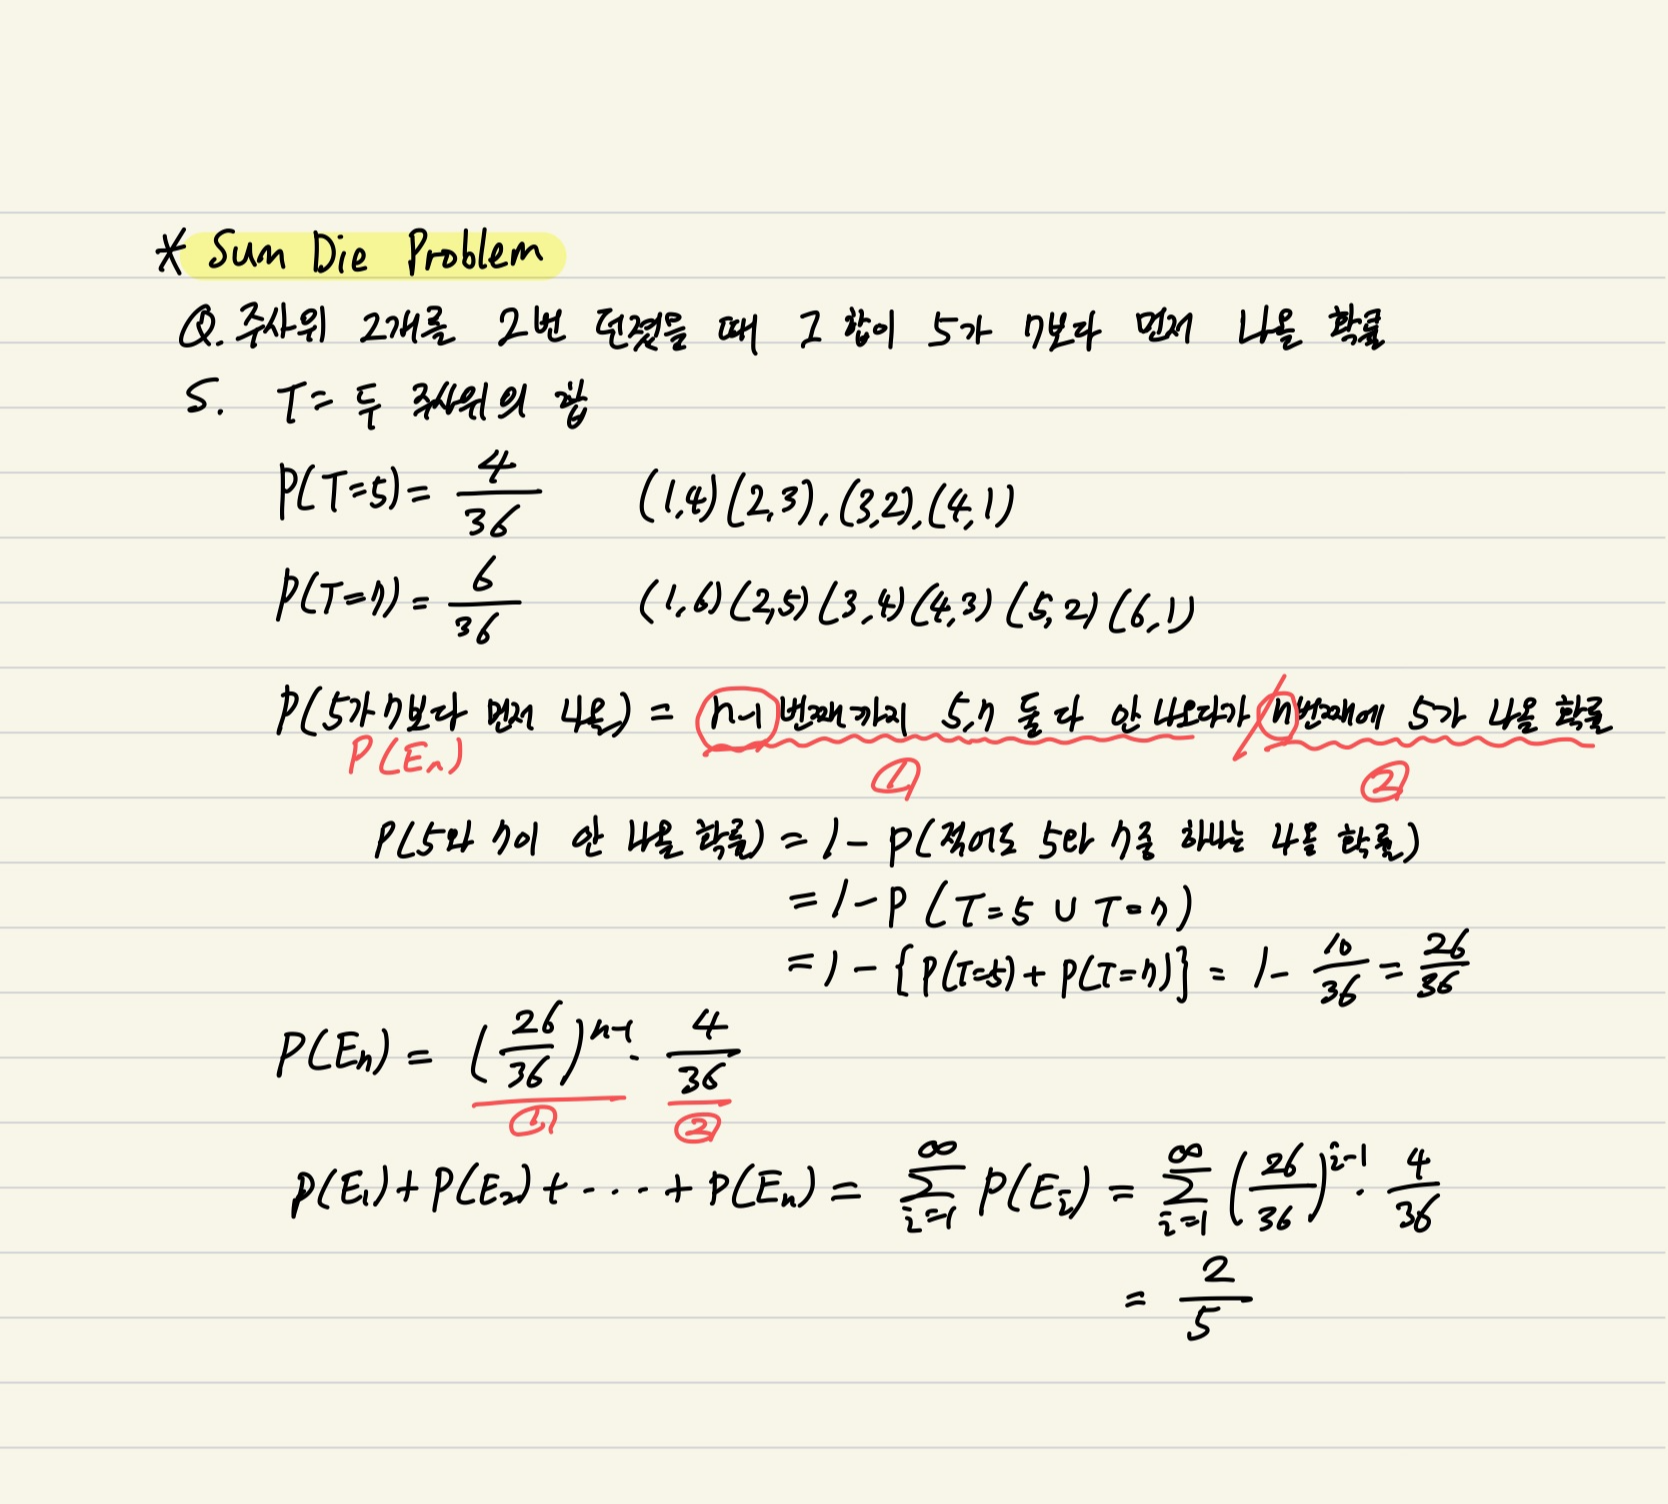 * Sum Die Problem
Q. 주사위 2개를 2번 던졌을 때 그 합이 5가 7보다 먼저 나올 확률
S. T = 두 주사위의 합
P(T=5) = 4/36 (1,4)(2,3),(3,2),(4,1)
P(T=7) = 6/36 (1,6)(2,5)(3,4)(4,3)(5,2)(6,1)
P(5가 7보다 먼저 나올) = n-1번째까지 5,7 둘 다 안 나오다가 / n번째에 5가 나올 확률
P(En) ① ②
P(5와 7이 안 나올 확률) = 1 - P(적어도 5와 7중 하나는 나올 확률)
= 1 - P(T=5 ∪ T=7)
= 1 - {P(T=5) + P(T=7)} = 1 - 10/36 = 26/36
P(En) = (26/36)^n-1 · 4/36
① ②
P(E1) + P(E2) + ···· + P(En) = ∞Σi=1 P(Ei) = ∞Σi=1 (26/36)^i-1 · 4/36
= 2/5